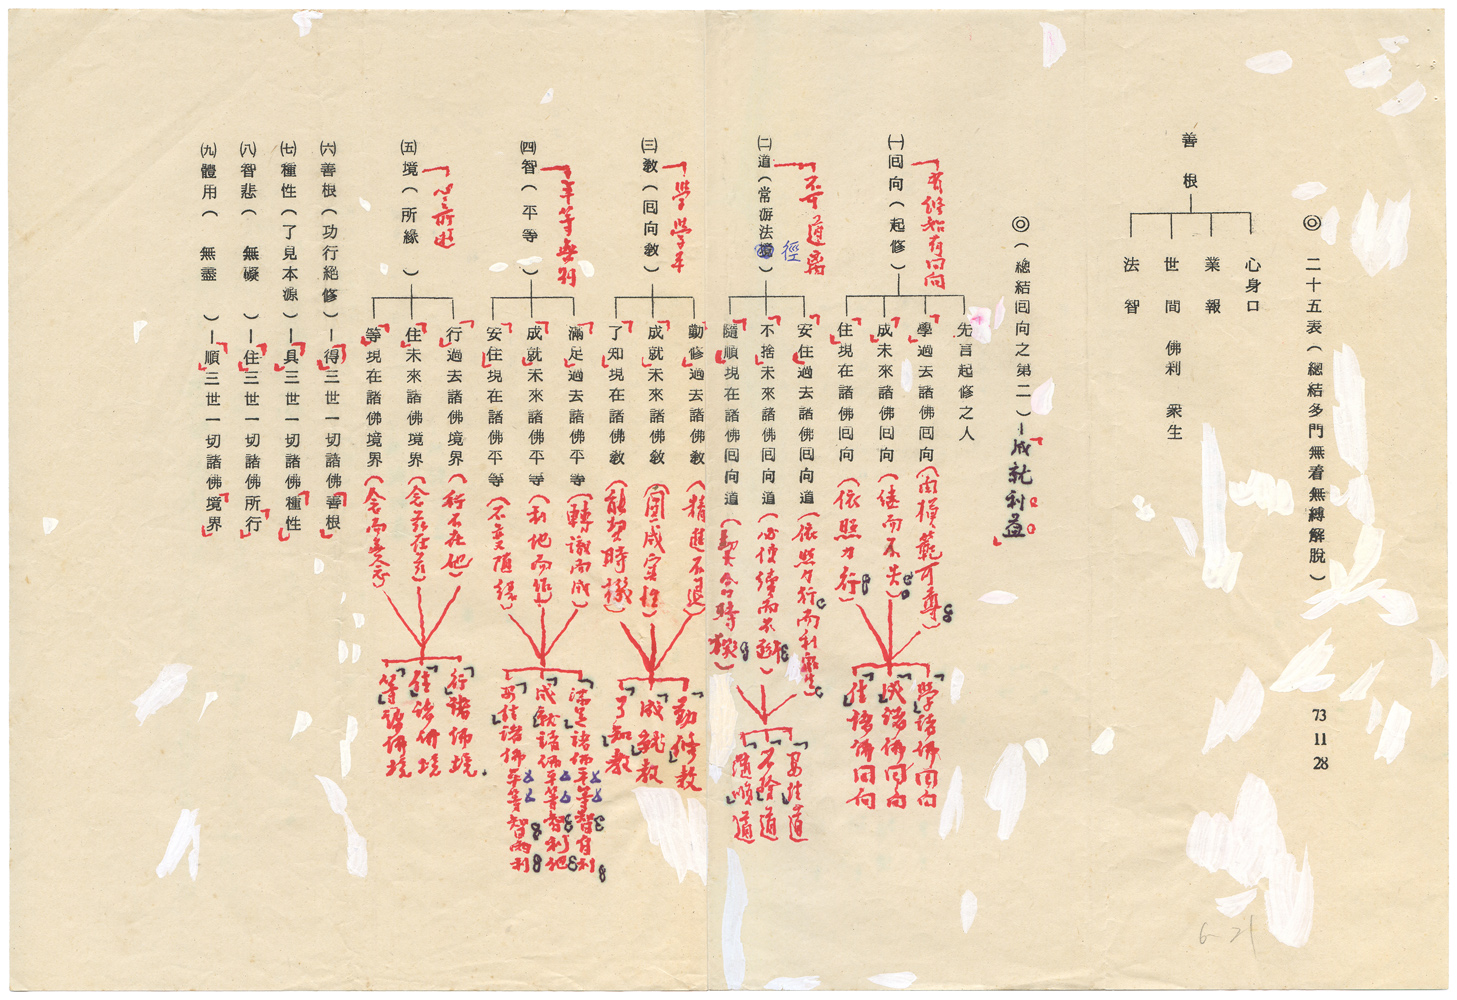 ◎二十五表（總結多門無着無縛解脫）
73
11
28
善根
心身口
業報
世間 佛刹 衆生
法智
◎（總結回向之第二）—成就利益
㈠回向（起修）
有修始有回向
先言起修之人
學過去諸佛回向（爾模範可尊）
成未來諸佛回向（使而不失）
住現在諸佛回向（依照力行）
學諸佛回向
成諸佛回向
住諸佛回向
㈡道（常游法 ）
徑
不可遠離
安住過去諸佛回向道（依照力行而利衆生）
不捨未來諸佛回向道（必使續而不斷）
隨順現在諸佛回向道
安住道
不捨道
隨順道
㈢教（回向教）
學
勤修過去諸佛教（精進不退）
成就未來諸佛教（圓成實性）
了知現在諸佛教（能契時機）
勤修教
成就教
了知教
㈣智（平等）
平等無別
滿足過去諸佛平等（轉識而成）
成就未來諸佛平等（利他而作）
安住現在諸佛平等（不變隨緣）
滿足諸佛平等智自利
成就諸佛平等智利他
安住諸佛平等智兩利
㈤境（所緣）
心之所遊
行過去諸佛境界（行不在他）
住未來諸佛境界（念茲在茲）
等現在諸佛境界（念而無念）
行諸佛境
住諸佛境
等諸佛境
㈥善根（功行絕修）—得三世一切諸佛善根
㈦種性（了見本源）—具三世一切諸佛種性
㈧智悲（無礙）—住三世一切諸佛所行
㈨體用（無盡）—順三世一切諸佛境界
6-21